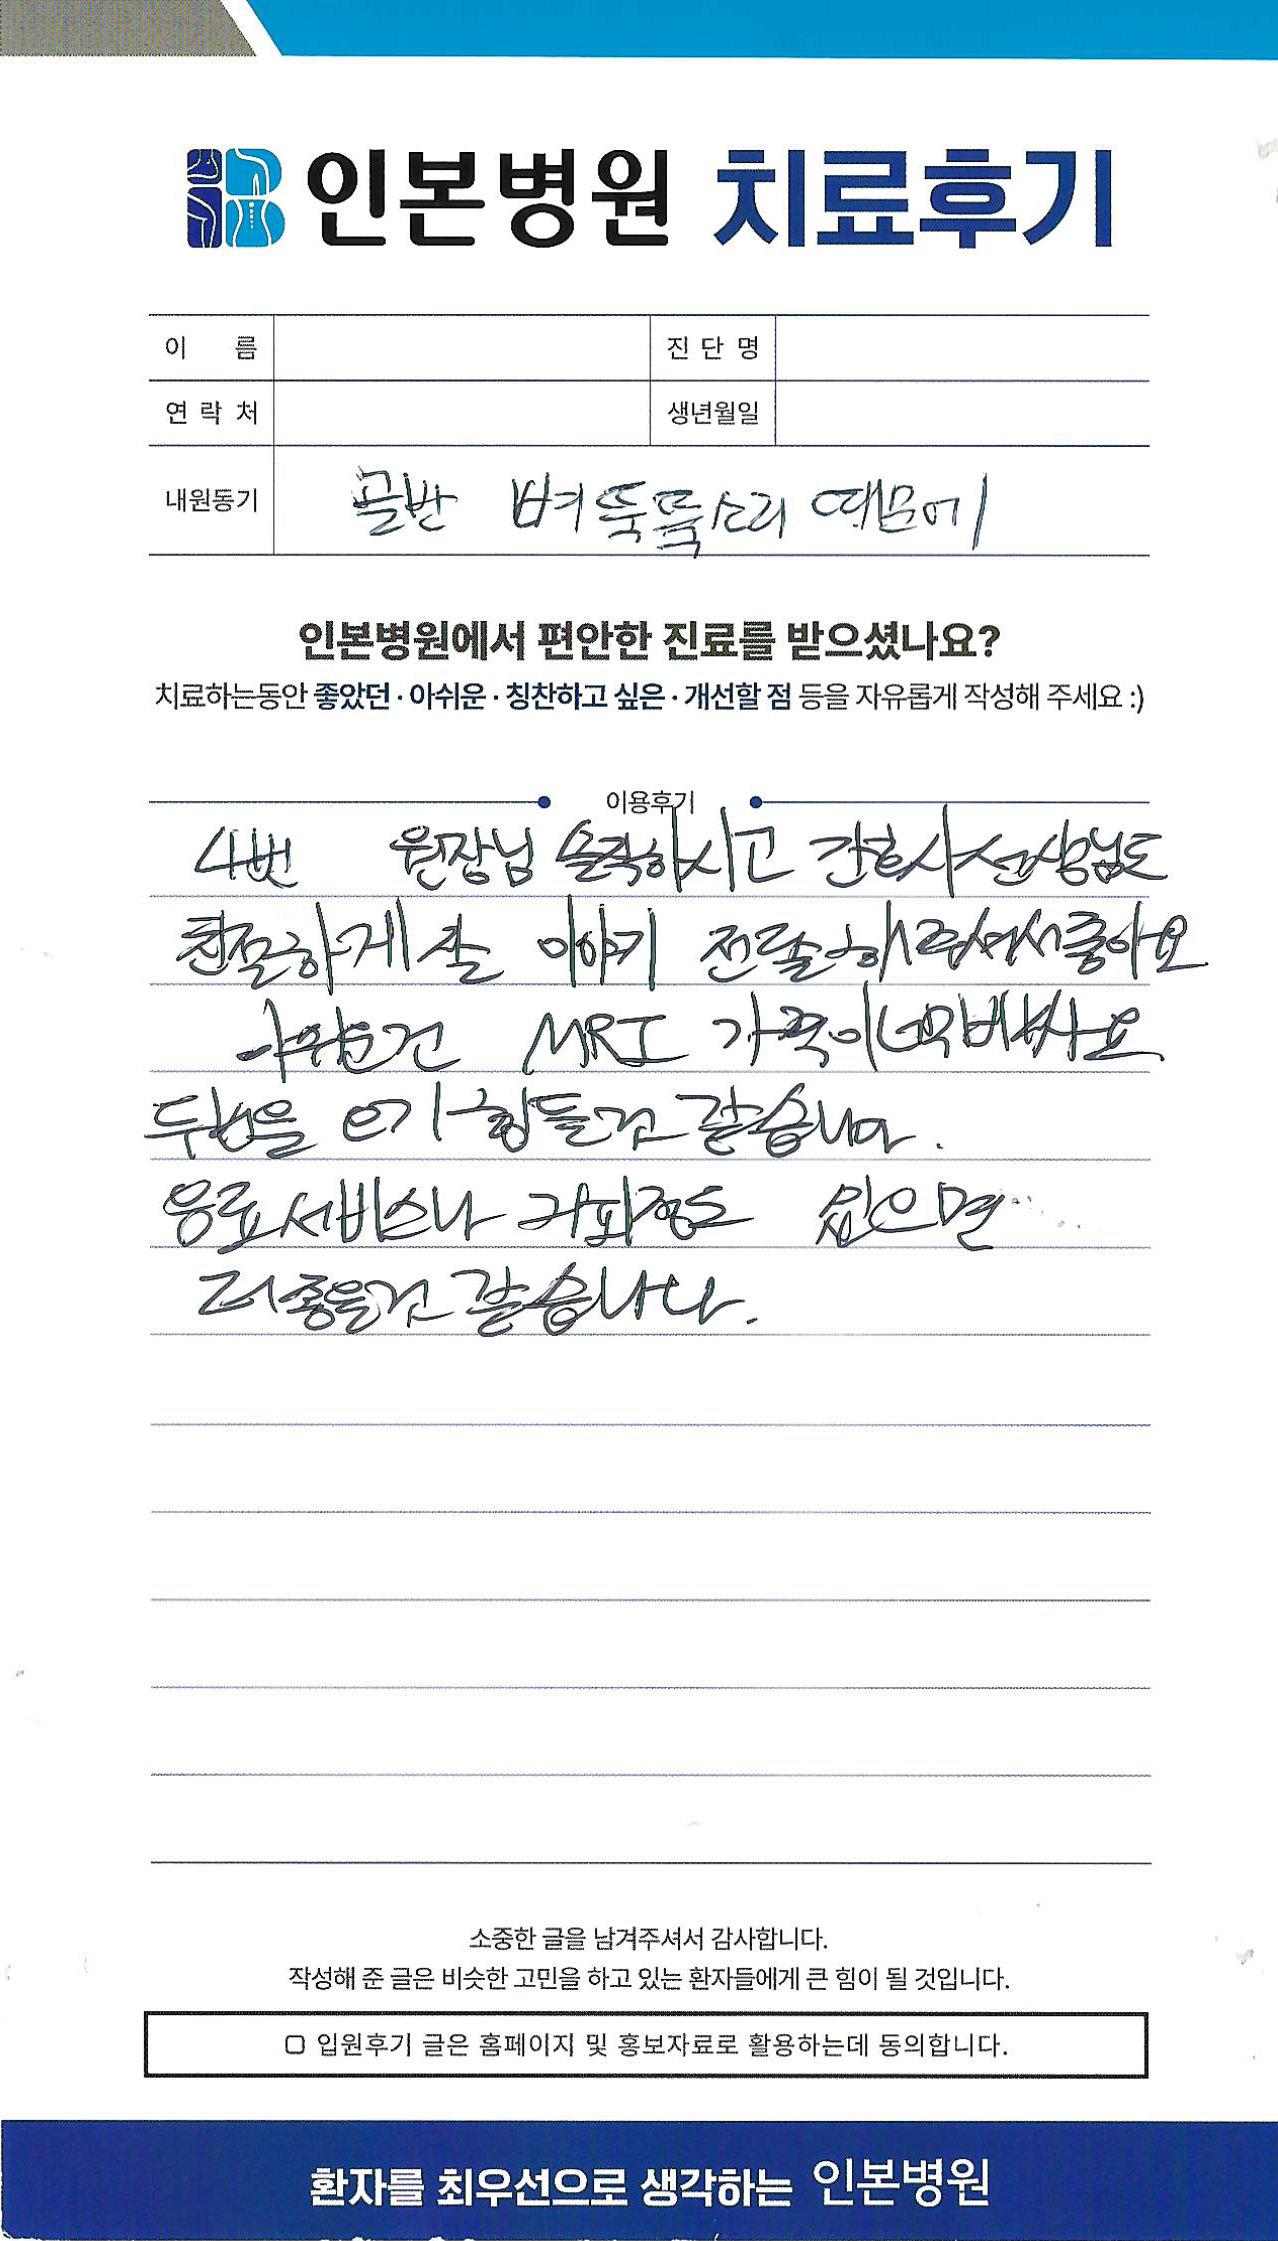 인본병원 치료후기
이 름
진 단 명
연 락 처
생년월일
내원동기
골반 뼈 뚝뚝소리 때문에
인본병원에서 편안한 진료를 받으셨나요?
치료하는동안 좋았던 · 아쉬운 · 칭찬하고 싶은 · 개선할 점 등을 자유롭게 작성해 주세요 :)
이용후기
4번 원장님 솔직하시고 간호사선생님도
친절하게 잘 이야기 전달해주셔서좋아요
아쉬운건 MRI 가격이너무비싸요
두번은 오기 힘들것 같습니다.
음료서비스나 다과정도 있으면
더좋을것 같습니다.
소중한 글을 남겨주셔서 감사합니다.
작성해 준 글은 비슷한 고민을 하고 있는 환자들에게 큰 힘이 될 것입니다.
입원후기 글은 홈페이지 및 홍보자료로 활용하는데 동의합니다.
환자를 최우선으로 생각하는 인본병원